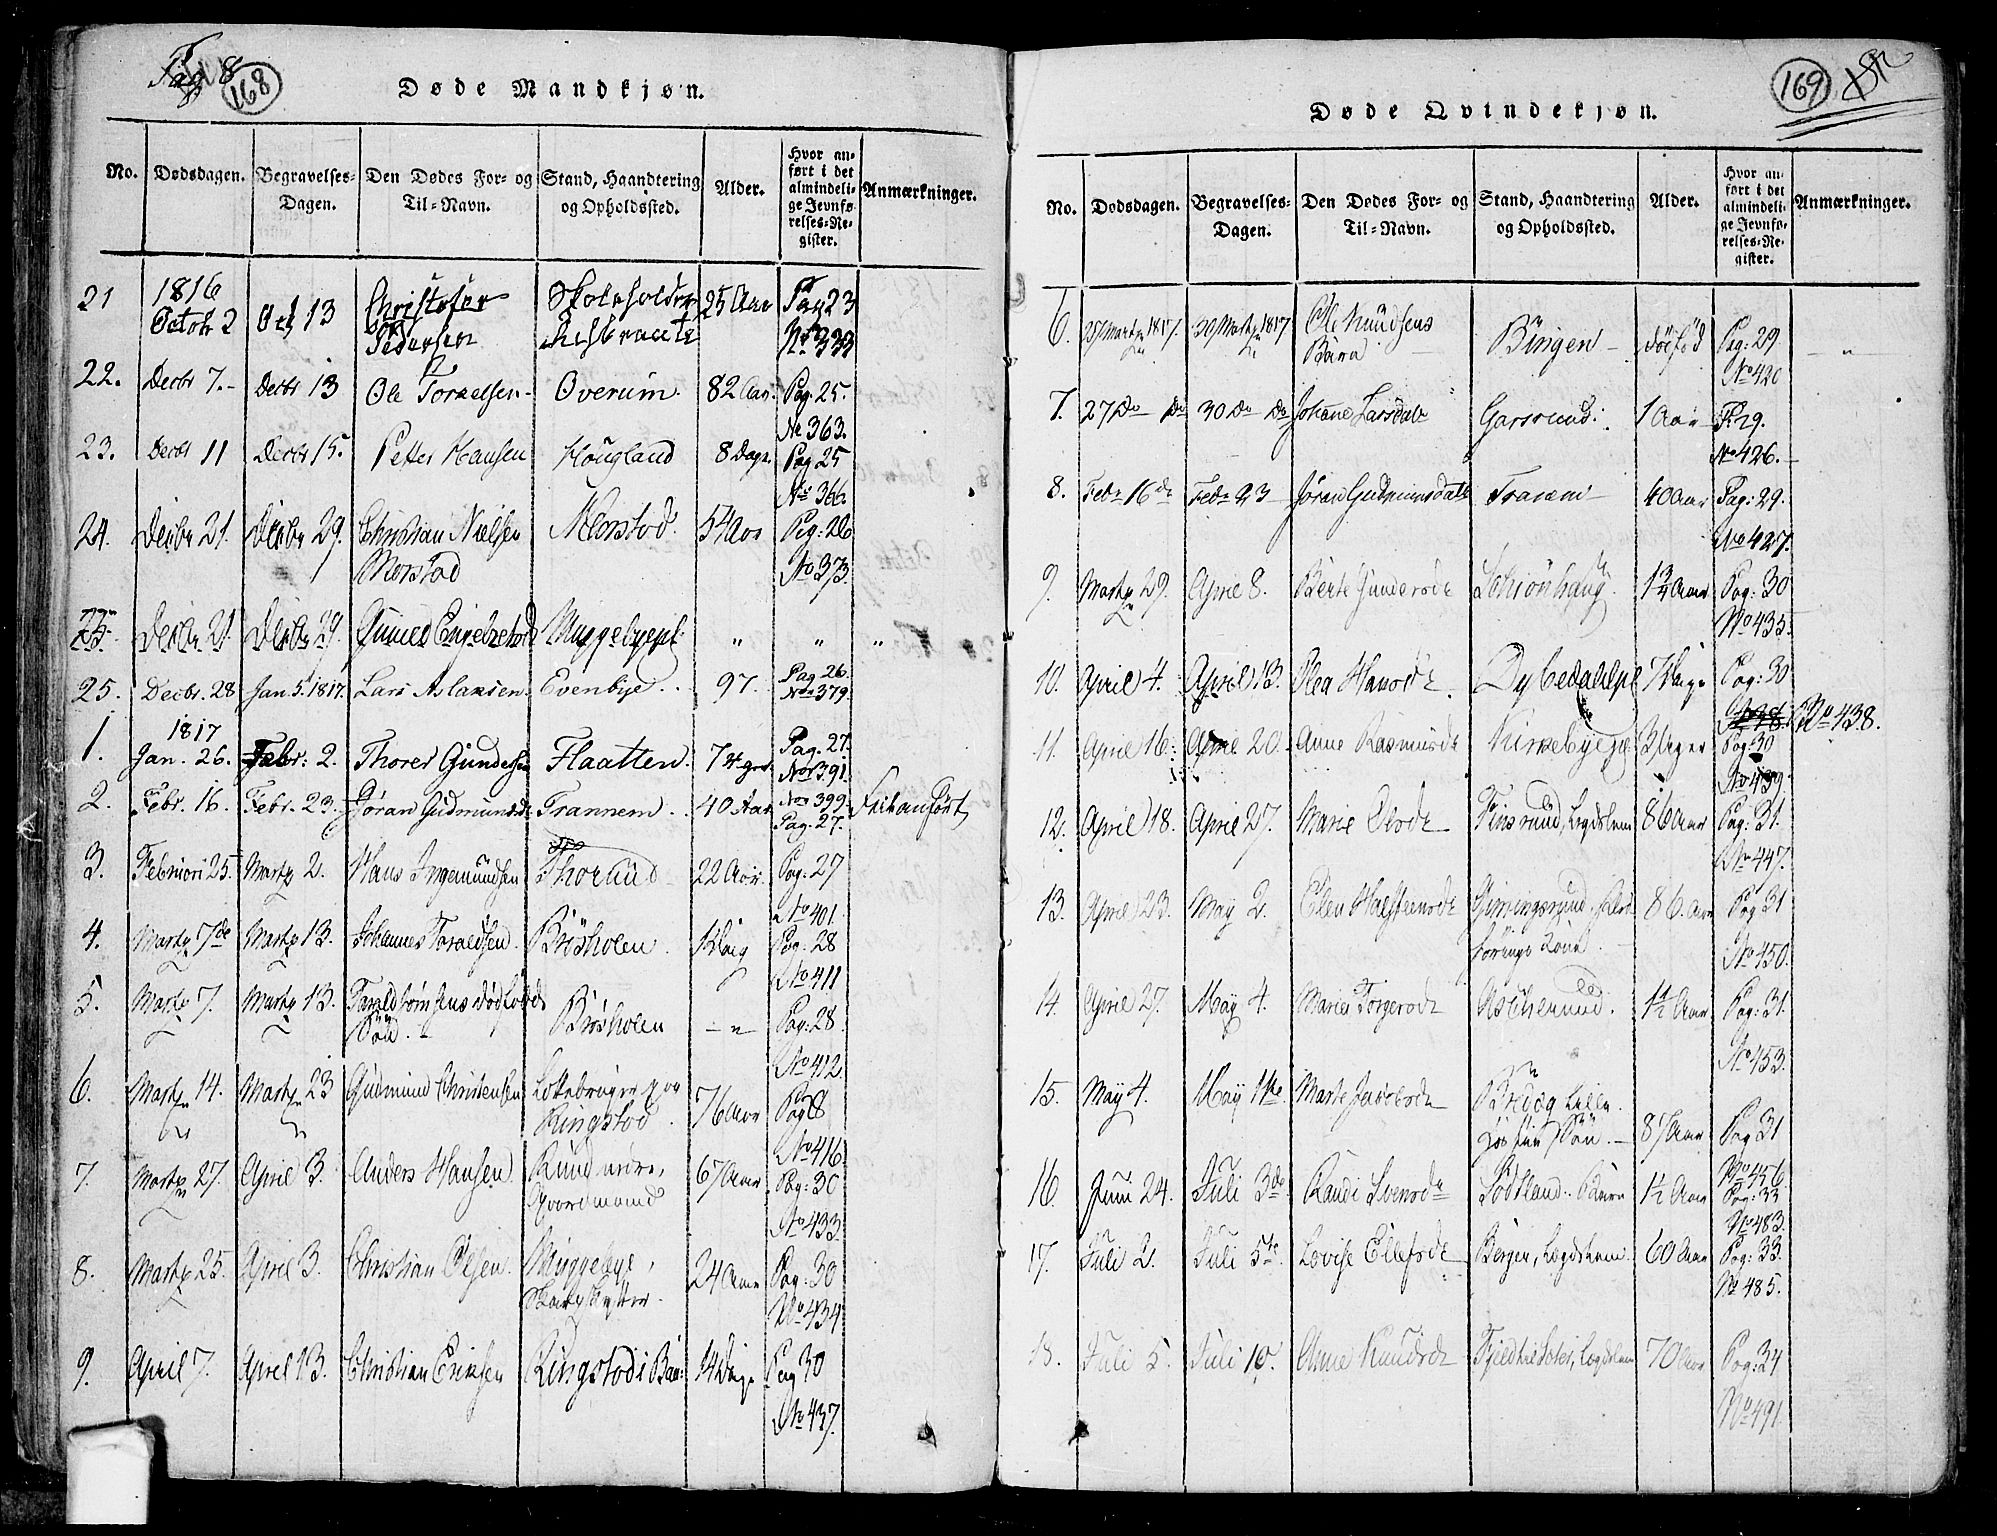 Pag 8
168
Døde Mandkjøn.
No. Dødsdagen. Begravelses-Dagen. Den Dødes For- og Til-Navn. Stand, Haandtering og Opholdssted. Alder. Hvor anført i det almindelige Jevnførelses-Register. Anmærkninger.
21 1816 Octobr 2 Oct 13 Christofer Pedersen Skoleholder 25 Aar Pag 23 No 333
22. Decbr 7. Decbr 13 Ole Torkelsen Overum 82 Aar. Pag. 25. No 363.
23. Decbr 11 Decbr 15. Petter Hansen Hougland 8 Dage Pag 25 No 366.
24. Decbr 21. Decbr 29. Christian Nielsen Morstad Morstad. 54 Aar Pag: 26 No 373.
25. Decbr 21. Decbr 29. Muggebyeeie. " " "
25. Decbr. 28 Jan 5. 1817. Lars Aslaksen Evenbye. 97. Pag 26. No 379.
1. 1817 Jan. 26. Febr: 2. Thorer Gundersen Flaatten. 7 Pag. 27. No 391.
2. Febr. 16. Febr. 23. Jøran Gudmundsd. Trannem. 40 Aar No 399 Pag. 27. Feilanført
3. Februari 25. Marty 2. Hans Ingemundsen Thorud 22 Aar. Pag: 27 No 401.
4. Marty 7de Marty 13. Johannes Taraldsen. Brösholen. Pag. 28 No 411
5. Marty 7. Marty 13. Dödfödde Sön. Brösholen " Pag: 28. No 412
6. Marty 14. Marty 23 Gudmund Christensen Ringstad. 76 Aar Pag 8 No 416
7. Marty 27. April 3. Anders Hansen. Rud nedre, Gaardmand 67 Aar Pag: 30 No 433.
8. Marty 25. April 3. Christian Olsen. Muggebye, 24 Aar Pag: 30 No 434
9. April 7. April 13. Christian Eriksen Ringstad 14 Dage Pag 30 No 437.
169
Døde Qvindekjøn.
No. Dødsdagen. Begravelses-Dagen. Den Dødes For- og Til-Navn. Stand, Haandtering og Opholdssted. Alder. Hvor anført i det almindelige Jevnførelses-Register. Anmærkninger.
6. 25 Marty 1817. 30 Marty 1817 Ole Knudsens Barn Bingen dödföd Pag: 29. No 420 "
7. 27 Do Do 30 Do Do Johane Larsdatr Garsrud. 1 Aar P. 29. No 426.
8. Febr 16de Febr 23 Jöran Gudmunsdatr Tranem 40 Aar Pag: 29. No 427.
9. Marty 29. April 8. Berte Gundersdr 1 3/4 Aar Pag: 30 No 435.
10. April 4. April 13. Olea Hansdr. Dybedahlpl 7 Dage Pag: 30 No 438.
11. April 16. April 20. Anne Rasmusdr Kirkebyeeie 3 Uger Pag: 30 No 439.
12. April 18. April 27. Marie Olsdr Finsrud, Legdslem 86 Aar Pag: 31. No 447.
13. April 23. May 2. Elen Halsteensdr 86 Aar Pag 31 No 450.
14. April 27. May 4. Maria Torgersdr Ascherud. 1 1/2 Aar Pag: 31. No 453.
15. May 4. May 11te Marte Jacobsdr 87 Aar Pag 31 No 456
16. Juni 24. Juli 3de Randi Svensdr Sødtland. Barn 1 1/2 Aar Pag: 33 No 483.
17. Juli 2. Juli 5te Lovise Ellefsdr Bergen, Legdslem. 60 Aar Pag: 33. No 485.
18. Juli 5. Juli 10. Anne Knudsdr Legdslem 70 Aar Pag: 34 No 491.